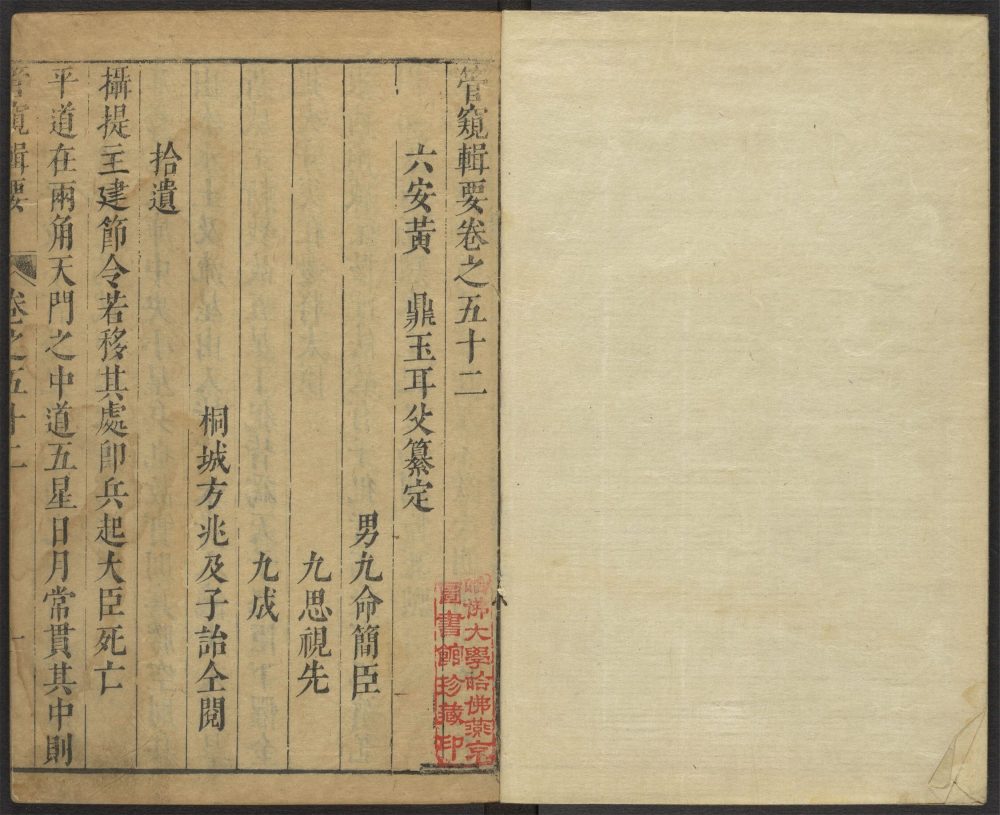 管窺輯要卷之五十二
六安黃 鼎玉耳父纂定
男九命簡臣
九思視先
九成
桐城方兆及子詒仝閱
拾遺
攝提主建節令若移其處卽兵起大臣死亡
平道在兩角天門之中道五星日月常貫其中則
管窺輯要 卷之五十二 一
哈佛大學哈佛燕京
圖書館珍藏印